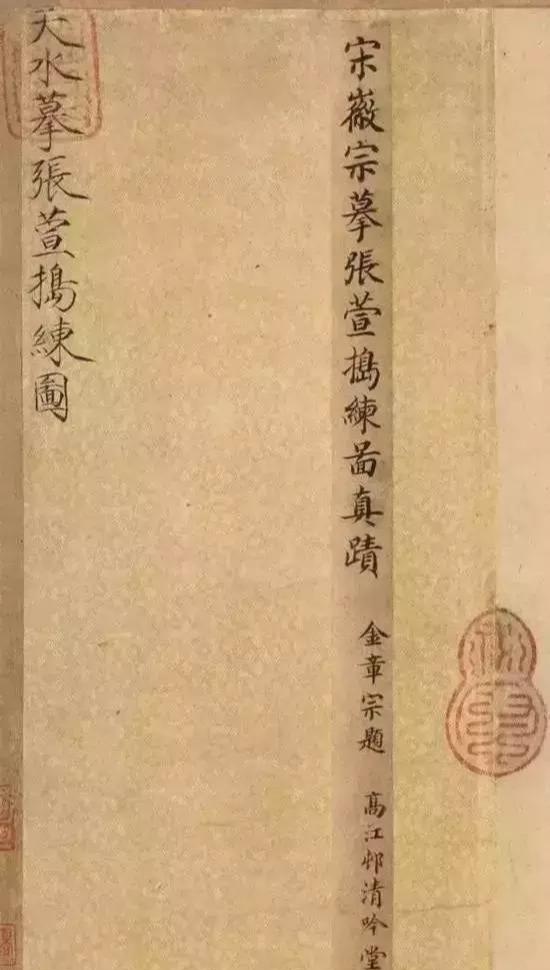 宋徽宗摹張萱搗練啚真蹟 金章宗題 高江邨清吟堂
天水摹張萱搗練圖